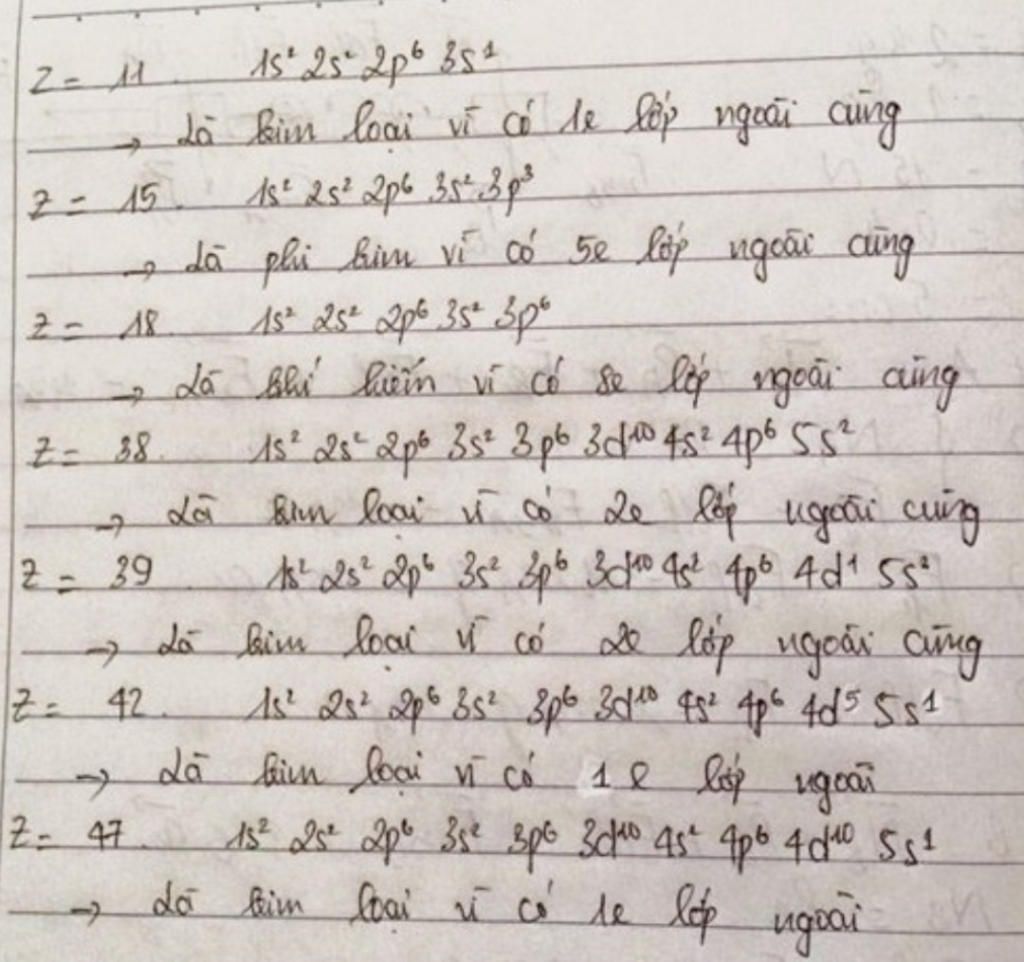 Z = 11 1s² 2s² 2p⁶ 3s¹
→ Là kim loại vì có 1e lớp ngoài cùng
Z = 15. 1s² 2s² 2p⁶ 3s² 3p³
→ Là phi kim vì có 5e lớp ngoài cùng
Z = 18. 1s² 2s² 2p⁶ 3s² 3p⁶
→ Là khí hiếm vì có 8e lớp ngoài cùng
Z = 38. 1s² 2s² 2p⁶ 3s² 3p⁶ 3d¹⁰ 4s² 4p⁶ 5s²
→ Là kim loại vì có 2e lớp ngoài cùng
Z = 39 1s² 2s² 2p⁶ 3s² 3p⁶ 3d¹⁰ 4s² 4p⁶ 4d¹ 5s²
→ Là kim loại vì có 2e lớp ngoài cùng
Z = 42. 1s² 2s² 2p⁶ 3s² 3p⁶ 3d¹⁰ 4s² 4p⁶ 4d⁵ 5s¹
→ Là kim loại vì có 1e lớp ngoài
Z = 47. 1s² 2s² 2p⁶ 3s² 3p⁶ 3d¹⁰ 4s² 4p⁶ 4d¹⁰ 5s¹
→ Là kim loại vì có 1e lớp ngoài